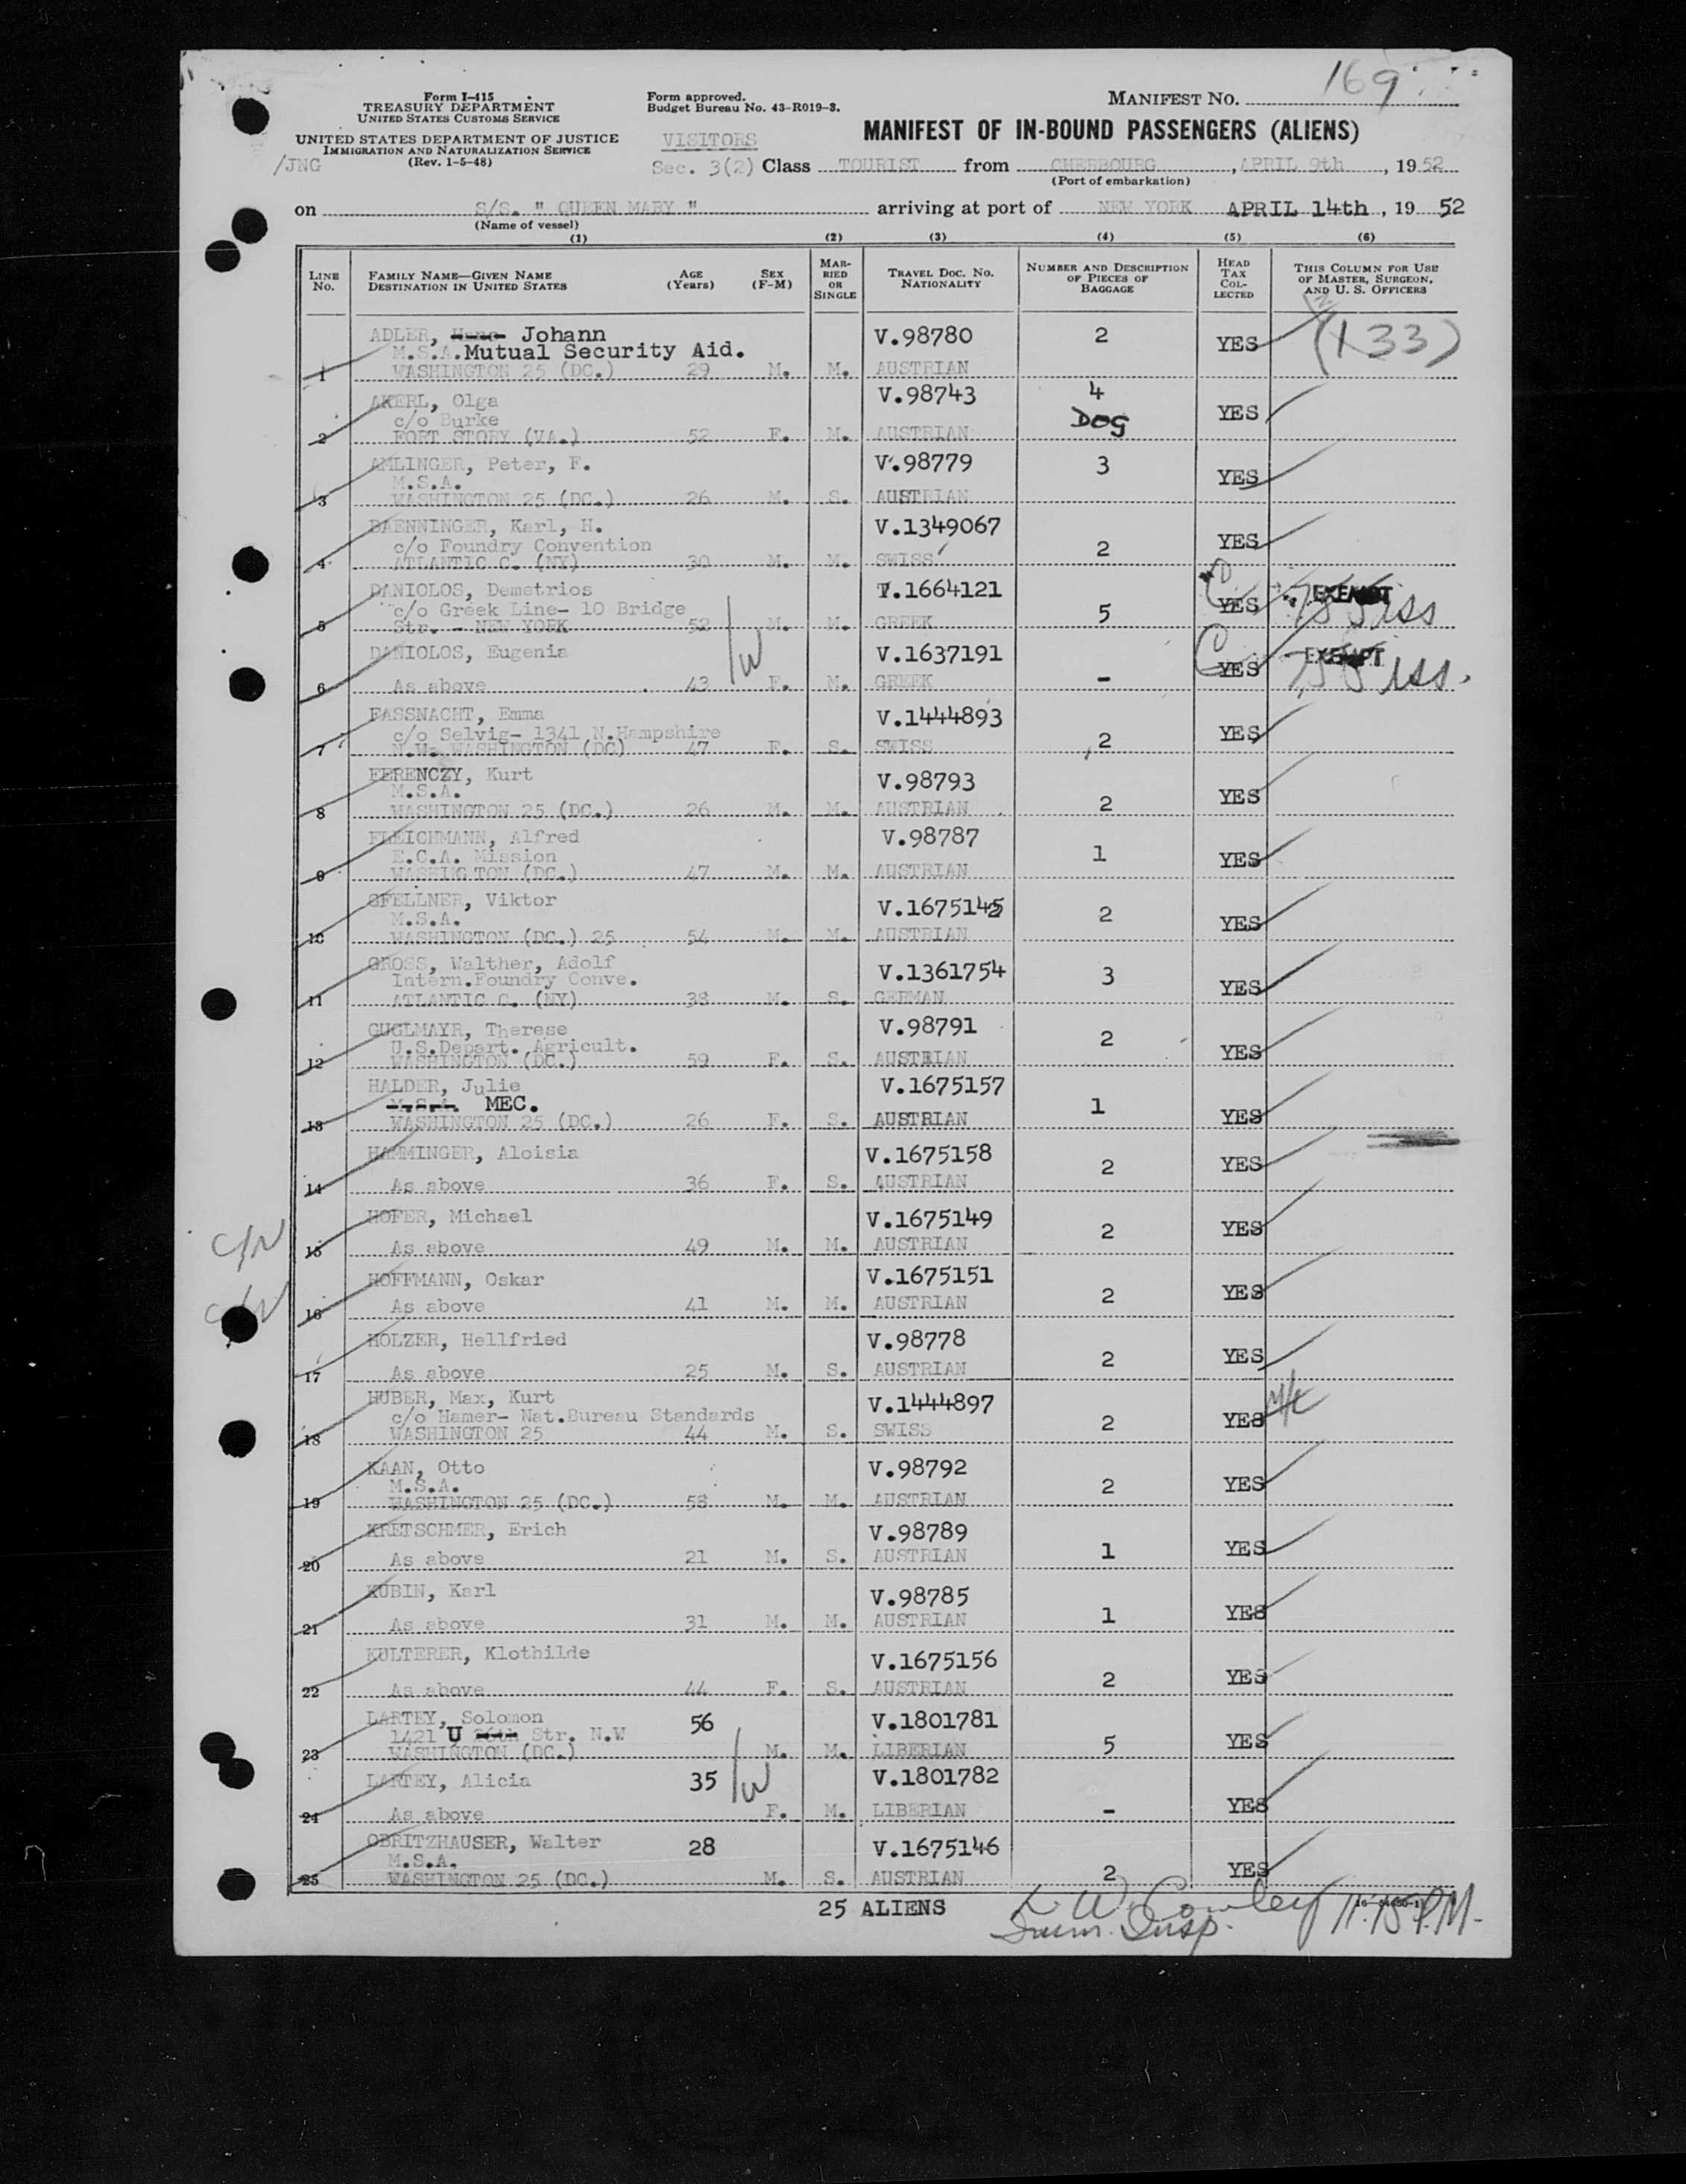 169
Form I-415
TREASURY DEPARTMENT
UNITED STATES CUSTOMS SERVICE
UNITED STATES DEPARTMENT OF JUSTICE
IMMIGRATION AND NATURALIZATION SERVICE
(Rev. 1-5-48)
/JNG
Form approved.
Budget Bureau No. 43-R019-3.
MANIFEST NO.
VISITORS
MANIFEST OF IN-BOUND PASSENGERS (ALIENS)
Sec. 3(2) Class TOURIST from CHERBOURG, APRIL 9th, 1952
(Port of embarkation)
on S/S. " QUEEN MARY " arriving at port of NEW YORK APRIL 14th, 19 52
(Name of vessel)
(1) (2) (3) (4) (5) (6)
LINE NO.
FAMILY NAME—GIVEN NAME
DESTINATION IN UNITED STATES
AGE (Years)
SEX (F-M)
MARRIED OR SINGLE
TRAVEL DOC. NO. NATIONALITY
NUMBER AND DESCRIPTION OF PIECES OF BAGGAGE
HEAD TAX COLLECTED
THIS COLUMN FOR USE OF MASTER, SURGEON, AND U. S. OFFICERS
ADLER, Johann V.98780 2 YES (133)
M.S.A. Mutual Security Aid.
1 WASHINGTON 25 (DC.) 29 M. M. AUSTRIAN
AKERL, Olga V.98743 4 YES
c/o Burke DOG
2 FORT STORY (VA.) 52 F. M. AUSTRIAN
AMLINGER, Peter, F. V.98779 3 YES
M.S.A.
3 WASHINGTON 25 (DC.) 26 M. S. AUSTRIAN
DAENNINGER, Karl, H. V.1349067 YES
c/o Foundry Convention 2
4 ATLANTIC C. (NY) 30 M. M. SWISS
DANIOLOS, Demetrios V.1664121 C EXEMPT
c/o Greek Line- 10 Bridge 5 YES
5 Str. - NEW YORK 52 M. M. GREEK
DANIOLOS, Eugenia /w V.1637191 C YES EXEMPT
6 As above 43 F. M. GREEK -
FASSNACHT, Emma V.1444893 YES
c/o Selvig- 1341 N.Hampshire 2
7 N.W. WASHINGTON (DC) 47 F. S. SWISS
FERENCZY, Kurt V.98793 YES
M.S.A.
8 WASHINGTON 25 (DC.) 26 M. M. AUSTRIAN 2
FLEICHMANN, Alfred V.98787 1 YES
E.C.A. Mission
9 WASHINGTON (DC.) 47 M. M. AUSTRIAN
GFELLNER, Viktor V.1675145 2 YES
M.S.A.
10 WASHINGTON (DC.) 25 54 M. M. AUSTRIAN
GROSS, Walther, Adolf V.1361754 3 YES
Intern.Foundry Conve.
11 ATLANTIC C. (NY) 38 M. S. GERMAN
GUGLMAYR, Therese V.98791 2 YES
U.S.Depart. Agricult.
12 WASHINGTON (DC.) 59 F. S. AUSTRIAN
HALDER, Julie V.1675157 1 YES
M.S.A. MEC.
13 WASHINGTON 25 (DC.) 26 F. S. AUSTRIAN
HAMMINGER, Aloisia V.1675158 2 YES
14 As above 36 F. S. AUSTRIAN
HOFER, Michael V.1675149 2 YES
C/N 15 As above 49 M. M. AUSTRIAN
HOFFMANN, Oskar V.1675151 2 YES
16 As above 41 M. M. AUSTRIAN
HOLZER, Hellfried V.98778 2 YES
17 As above 25 M. S. AUSTRIAN
HUBER, Max, Kurt V.1444897 2 YES
c/o Hamer- Nat.Bureau Standards
18 WASHINGTON 25 44 M. S. SWISS
KAAN, Otto V.98792 2 YES
M.S.A.
19 WASHINGTON 25 (DC.) 58 M. M. AUSTRIAN
KRETSCHMER, Erich V.98789 1 YES
20 As above 21 M. S. AUSTRIAN
KUBIN, Karl V.98785 1 YES
21 As above 31 M. M. AUSTRIAN
KULTERER, Klothilde V.1675156 2 YES
22 As above 44 F. S. AUSTRIAN
LARTEY, Solomon 56 V.1801781 5 YES
1421 U 26th Str. N.W
23 WASHINGTON (DC.) M. M. LIBERIAN
LARTEY, Alicia 35 /w V.1801782 - YES
24 As above F. M. LIBERIAN
OBRITZHAUSER, Walter 28 V.1675146 2 YES
M.S.A.
25 WASHINGTON 25 (DC.) M. S. AUSTRIAN
25 ALIENS
W. Cowley 11.15 P.M.
Imm. Insp.